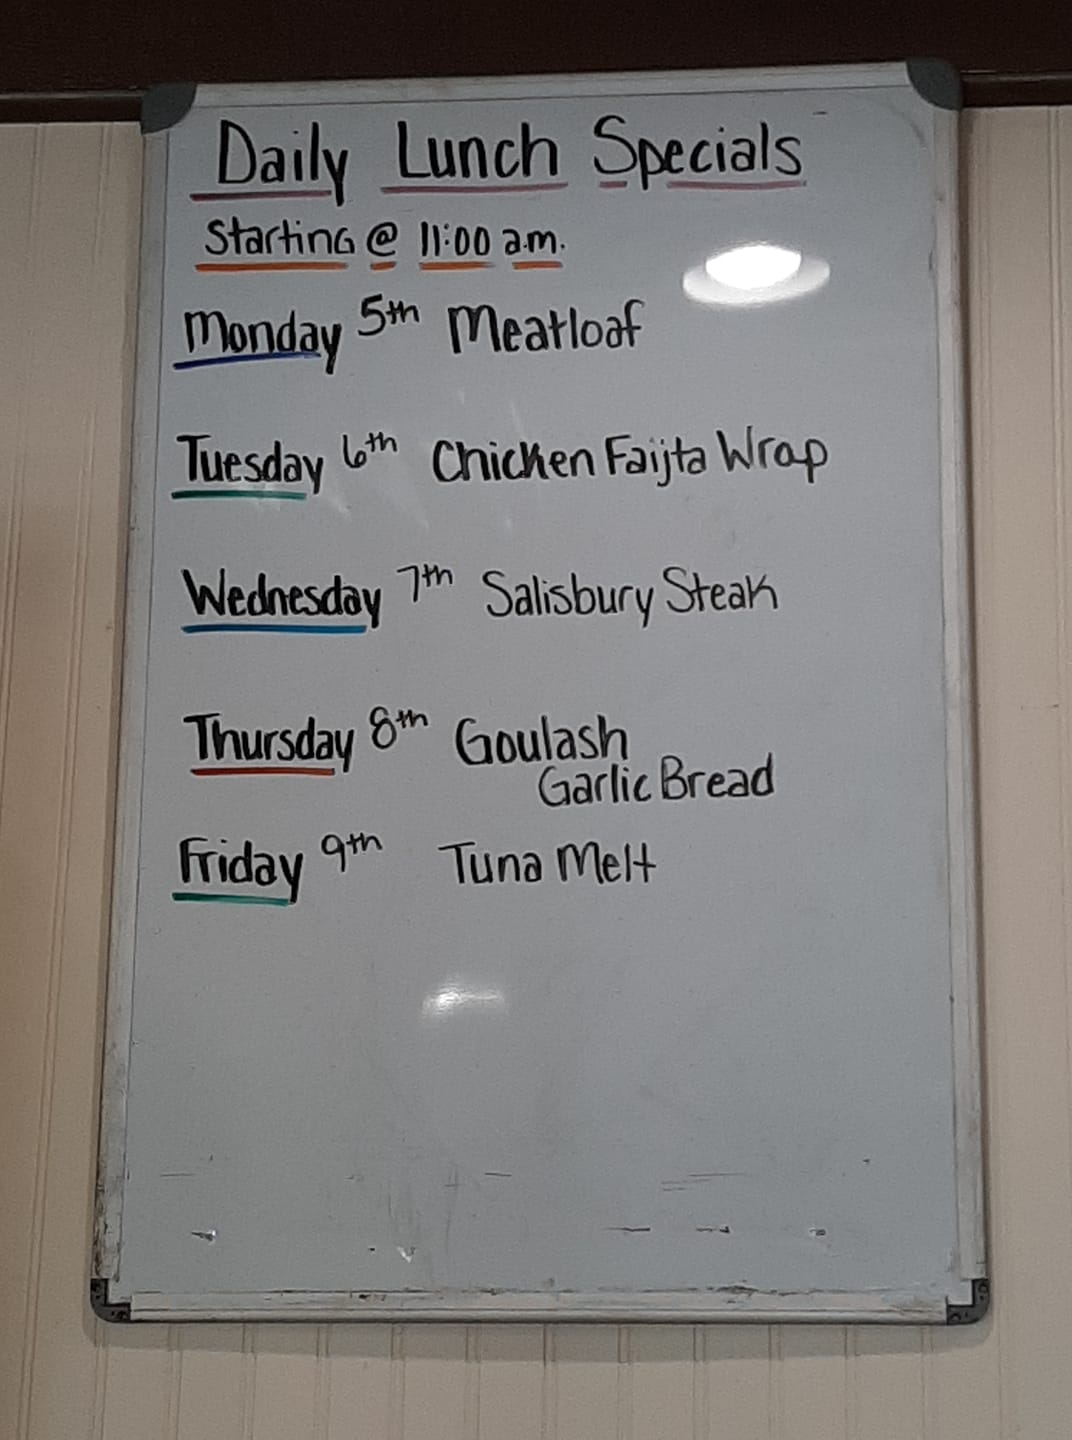 Daily Lunch Specials
Starting @ 11:00 a.m.
Monday 5th Meatloaf
Tuesday 6th Chicken Faijta Wrap
Wednesday 7th Salisbury Steak
Thursday 8th Goulash
Garlic Bread
Friday 9th Tuna Melt